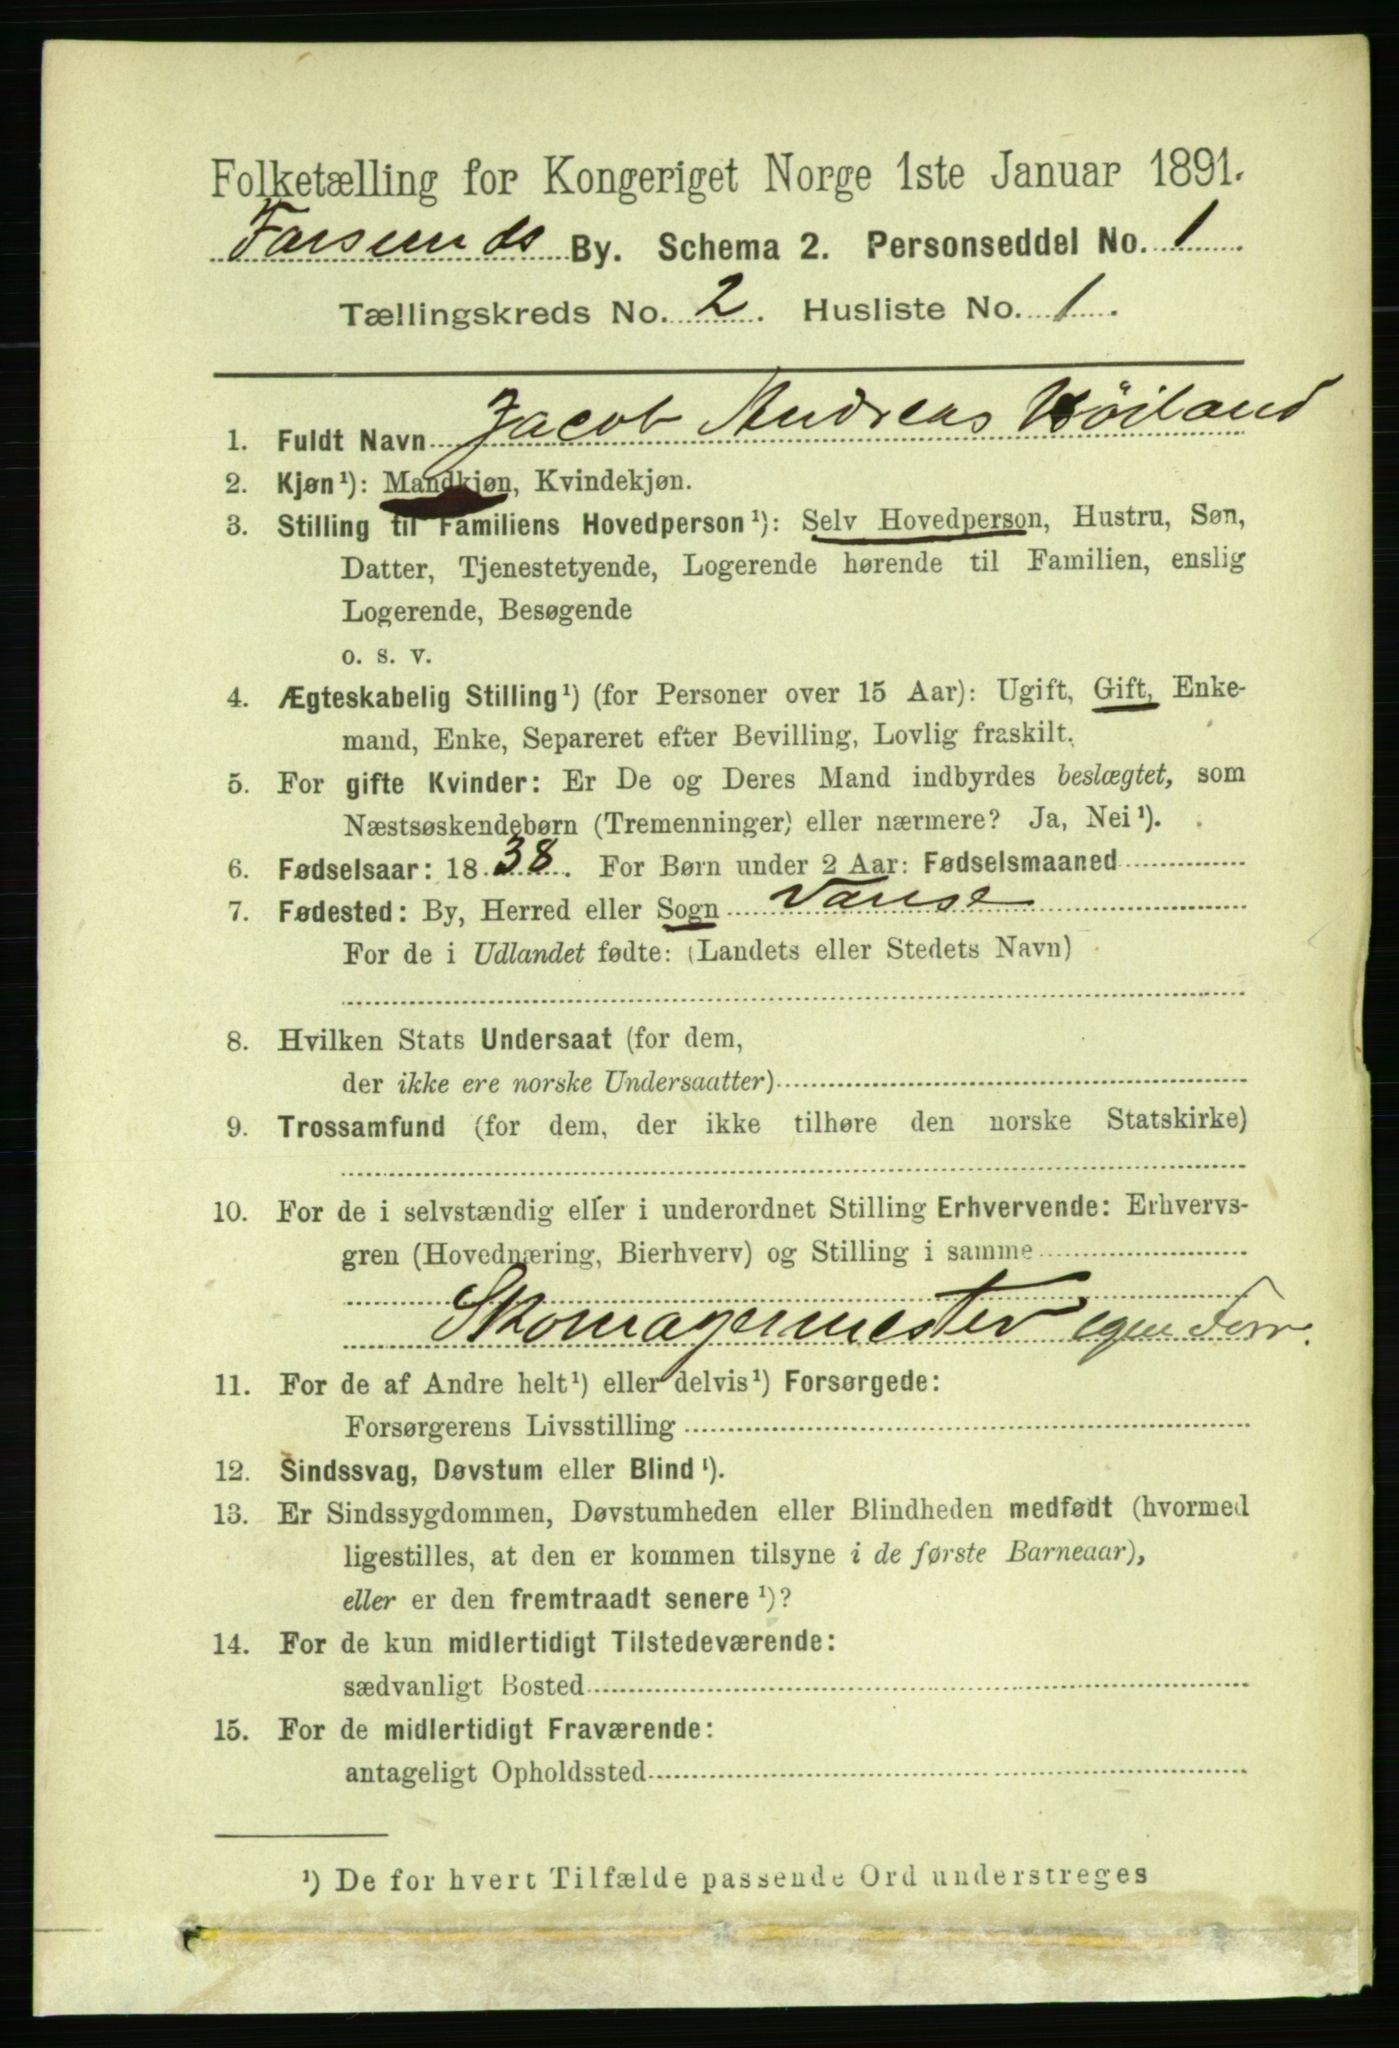 Folketælling for Kongeriget Norge 1ste Januar 1891.
Farsunds By. Schema 2. Personseddel No. 1
Tællingskreds No. 2. Husliste No. 1.
1. Fuldt Navn Jacob Andreas Høiland
2. Kjøn¹): Mandkjøn, Kvindekjøn.
3. Stilling til Familiens Hovedperson¹): Selv Hovedperson, Hustru, Søn,
Datter, Tjenestetyende, Logerende hørende til Familien, enslig
Logerende, Besøgende
o. s. v.
4. Ægteskabelig Stilling¹) (for Personer over 15 Aar): Ugift, Gift, Enke-
mand, Enke, Separeret efter Bevilling, Lovlig fraskilt.
5. For gifte Kvinder: Er De og Deres Mand indbyrdes beslægtet, som
Næstsøskendebørn (Tremenninger) eller nærmere? Ja, Nei¹).
6. Fødselsaar: 1838. For Børn under 2 Aar: Fødselsmaaned
7. Fødested: By, Herred eller Sogn Vanse
For de i Udlandet fødte: (Landets eller Stedets Navn)
8. Hvilken Stats Undersaat (for dem,
der ikke ere norske Undersaatter)
9. Trossamfund (for dem, der ikke tilhøre den norske Statskirke)
10. For de i selvstændig eller i underordnet Stilling Erhvervende: Erhvervs-
gren (Hovednæring, Bierhverv) og Stilling i samme
Skomagermester egen Forr.
11. For de af Andre helt¹) eller delvis¹) Forsørgede:
Forsørgerens Livsstilling
12. Sindssvag, Døvstum eller Blind¹).
13. Er Sindssygdommen, Døvstumheden eller Blindheden medfødt (hvormed
ligestilles, at den er kommen tilsyne i de første Barneaar),
eller er den fremtraadt senere¹)?
14. For de kun midlertidigt Tilstedeværende:
sædvanligt Bosted
15. For de midlertidigt Fraværende:
antageligt Opholdssted
¹) De for hvert Tilfælde passende Ord understreges